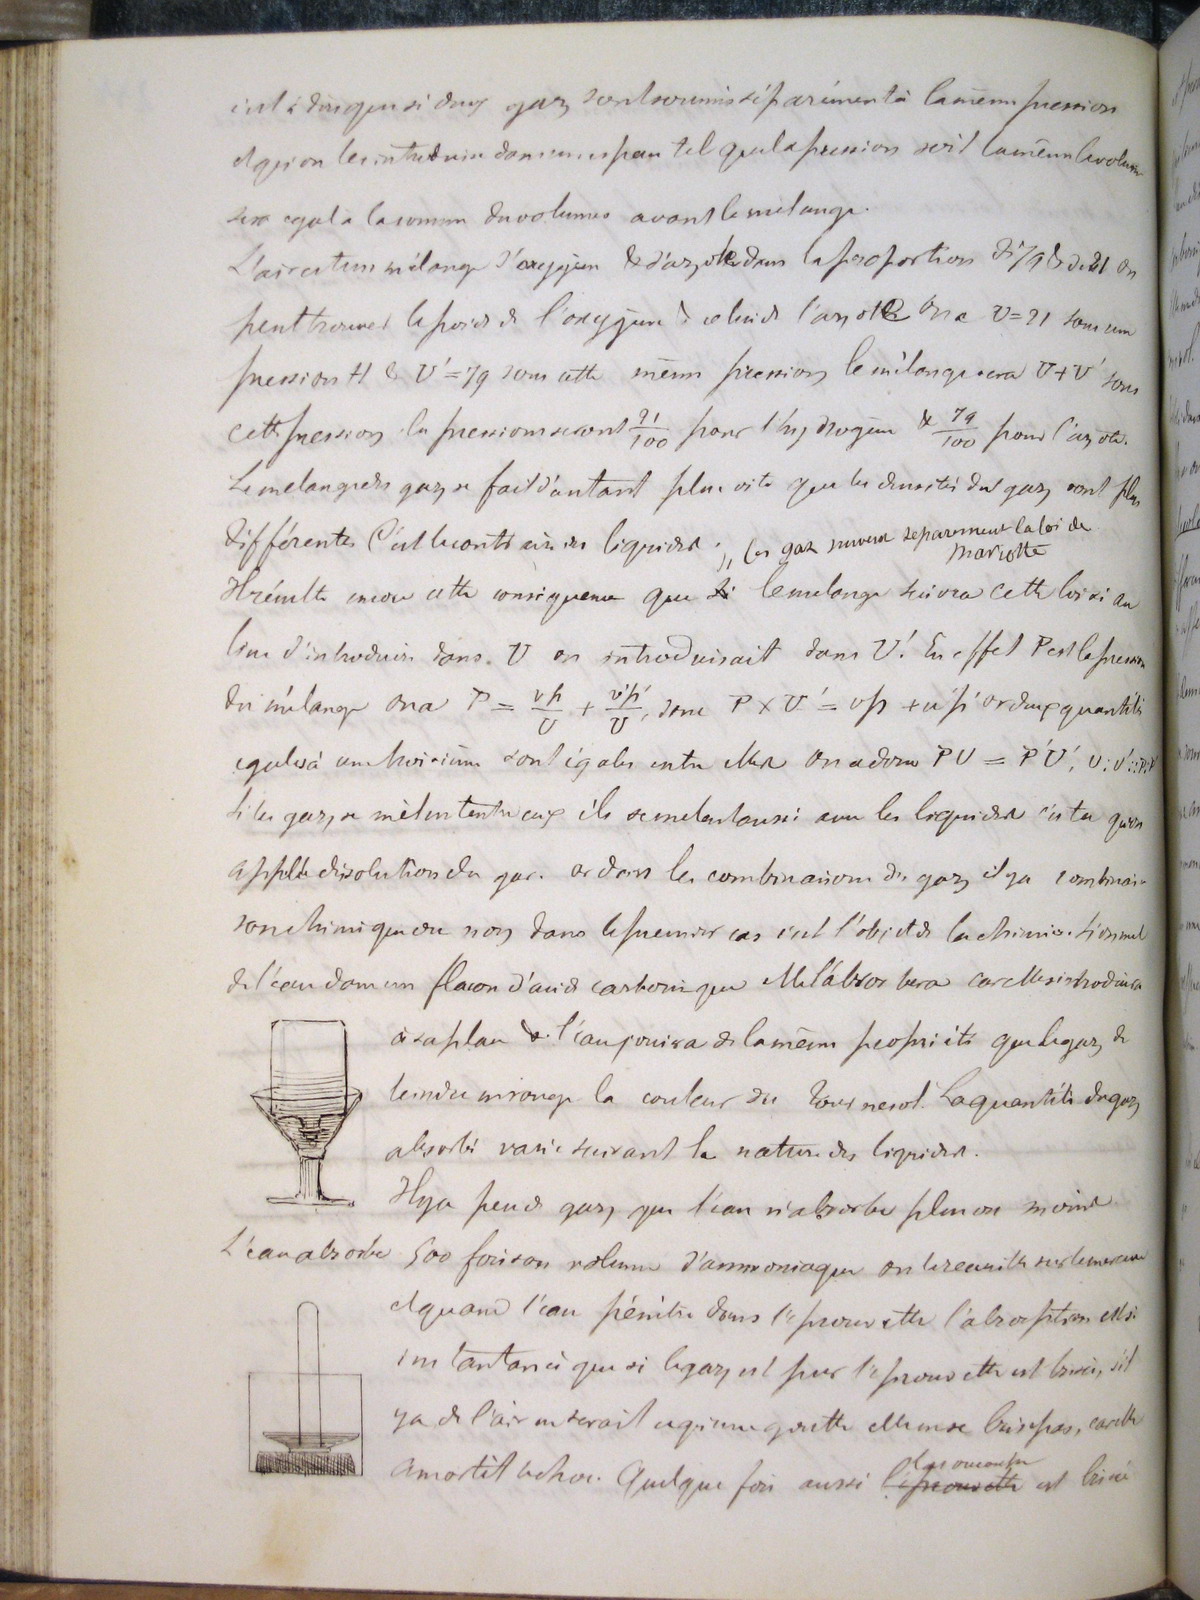 c'est à dire que si deux gaz sont soumis séparément à la même pression
et qu'on les introduise dans un espace tel que la pression soit la même le volume
sera egal à la somme des volumes avant le mélange.
L'air est un mélange d'oxygène & d'azote dans la proportion de 79 & de 21 on
peut trouver le poids de l'oxygène & celui de l'azote On a V=21 sous une
pression H & V'=79 sous cette même pression le mélange sera V+V' sous
cette pression les pressions seront 21/100 pour l'hydrogène & 79/100 pour l'azote.
Le mélange des gaz se fait d'autant plus vite que les densités des gaz sont plus
différentes C'est le contraire des liquides.
,, les gaz suivent separement la loi de
Mariotte
Il résulte encore cette conséquence que le mélange suivra cette loi si au
lieu d'introduire dans U on introduisait dans U'. En effet P est la pression
du mélange on a P = vp/U + v'p'/U, donc P×U = vp + v'p' or deux quantités
egales à une troisième sont égales entre elles on a donc PU = P'U',
Si les gaz se mèlent entre eux ils se melent aussi avec les liquides c'est ce qu'on
appele dissolution du gaz. or dans les combinaisons de gaz il y a combinai-
son chimique ou non dans le premier cas c'est l'objet de la chimie. Si on met
de l'eau dans un flacon d'acide carbonique elle l'absorbera car elle s'introduira
à sa place & l'eau jouira de la même propriété que le gaz de
teindre en rouge la couleur du tournesol. La quantité du gaz
absorbé varie suivant la nature des liquides.
Il y a peu de gaz que l'eau n'absorbe plus ou moins
L'eau absorbe 500 fois son volume d'ammoniaque on le recueille sur le mercure
et quand l'eau pénètre dans l'éprouvette l'absorption est si
instantanée que si le gaz est pur l'éprouvette est brisée, s'il
y a de l'air ne serait ce qu'une goutte elle ne se brise pas, car elle
amortit le choc. Quelque fois aussi l'éprouvette est brisée